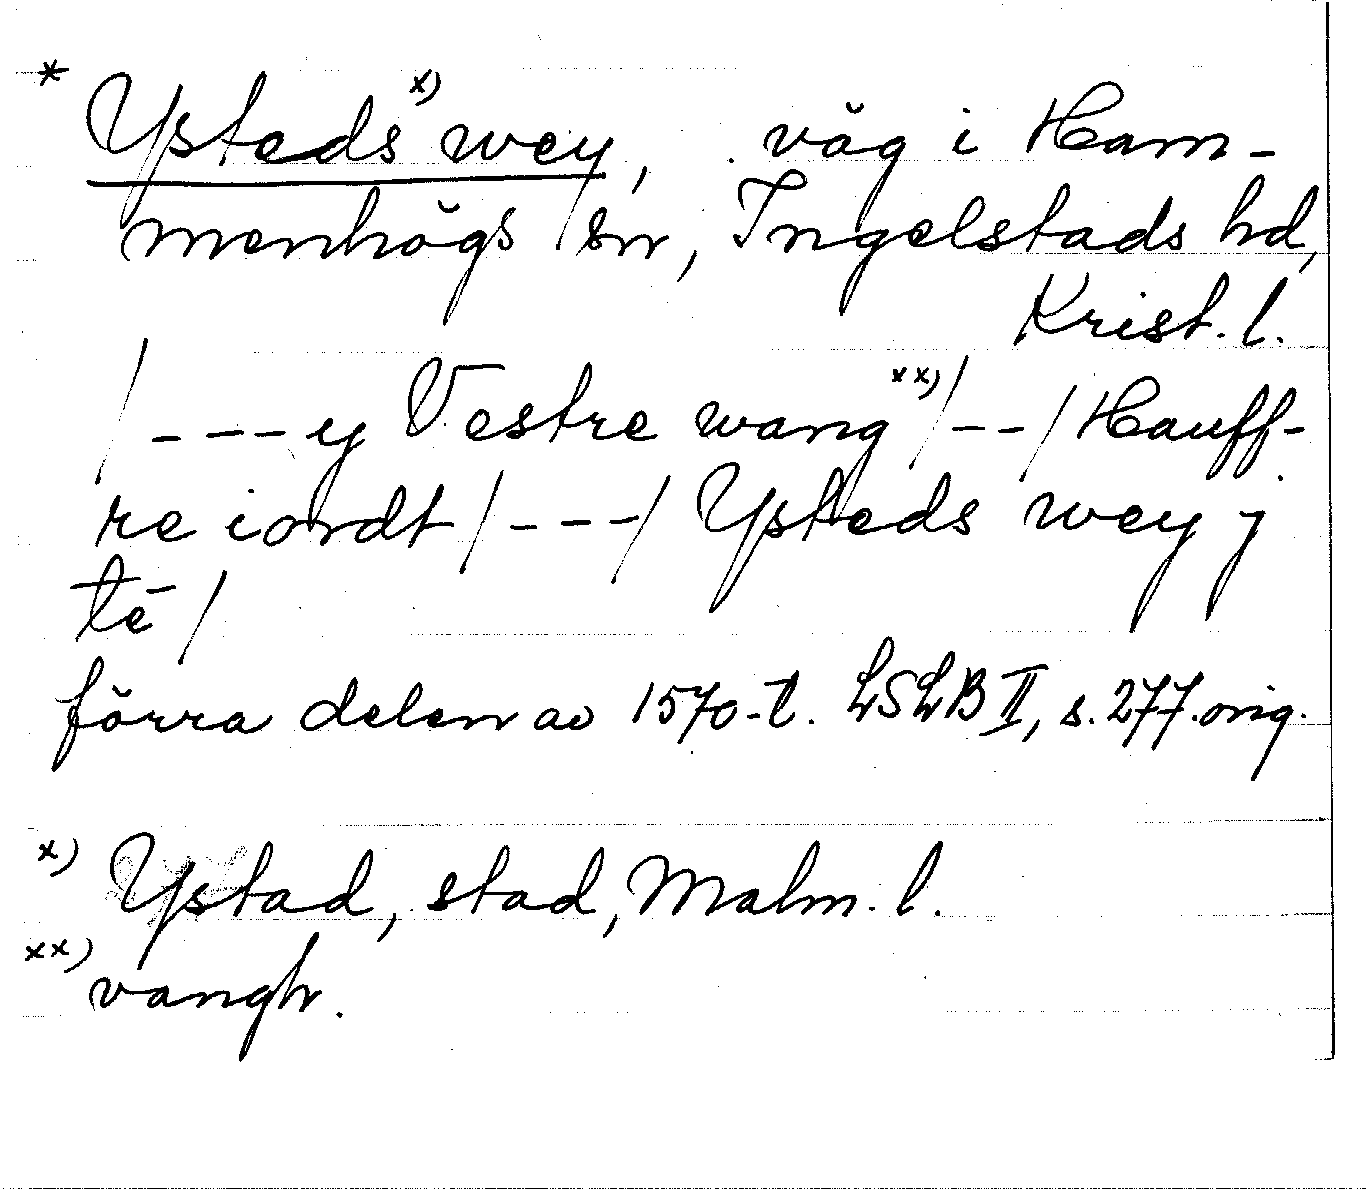 * Ysteds x) wey, väg i Ham-
menhögs sn, Ingelstads hd,
Krist. l.
/---y Vestre wang xx)/--/Hauff-
re iordt/---/Ysteds wey j
tē/
förra delen av 1570-t. LSLB II, s. 277. orig.
x) Ystad, stad, Malm. l.
xx) vangh.